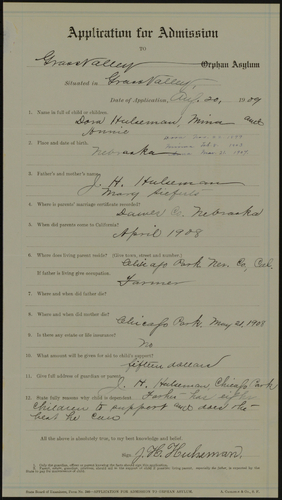 Application for Admission
TO
Grass Valley Orphan Asylum
Situated in Grass Valley,
Date of Application, 20, 1909
1. Name in full of child or children. Dora Hulseman, Minna and
Annie
2. Place and date of birth.
Nebraska
3. Father's and mother's name.
J. H. Hulseman
Mary
4. Where is parents' marriage certificate recorded?
Dawes Co. Nebraska
5. When did parents come to California?
April 1908
6. Where does living parent reside? (Give town, street and number.)
Chicago Park Nev. Co, Cal.
If father is living give occupation.
Farmer
7. Where and when did father die?
8. Where and when did mother die?
Chicago Park. May 21, 1908
9. Is there any estate or life insurance?
No
10. What amount will be given for aid to child's support?
fifteen dollars
11. Give full address of guardian or parent.
J. H. Hulseman Chicago Park
12. State fully reasons why child is dependent. Father has
children to support and does the
best he can
All the above is absolutely true, to my best knowledge and belief.
Sign J. H. Hulseman.